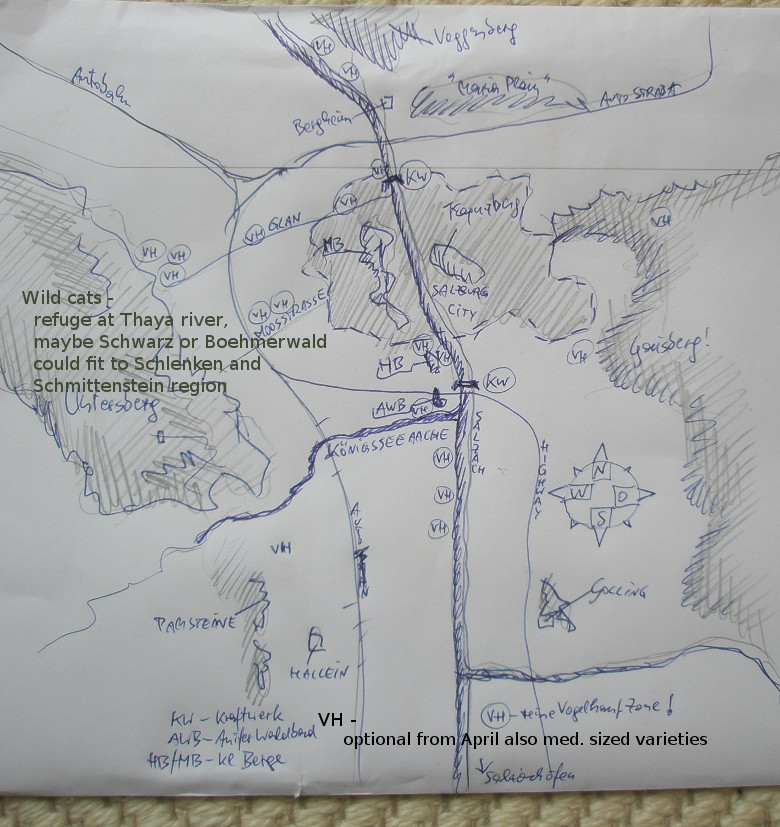 VH
Autobahn
VH
"Maria Plain"
AUTOSTRADA
Bergheim
VH
KW
VH
VH
GLAN
VH
VH
VH
MB
SALZBURG
CITY
VH
Wild cats -
refuge at Thaya river,
maybe Schwarz or Boehmerwald
could fit to Schlenken and
Schmittenstein region
VH
VH
MOOSSTRASSE
VH
VH
HB
VH
Gaisberg!
KW
AWB
VH
KÖNIGSSEEACHE
SALZACH
HIGHWAY
VH
VH
VH
N
W
O
S
VH
GOLLING
HALLEIN
KW - Kraftwerk
VH -
VH - reine Vogelhauf Zone!
AWB - Anifer Waldbad
optional from April also med. sized varieties
HB/MB - kl Berge